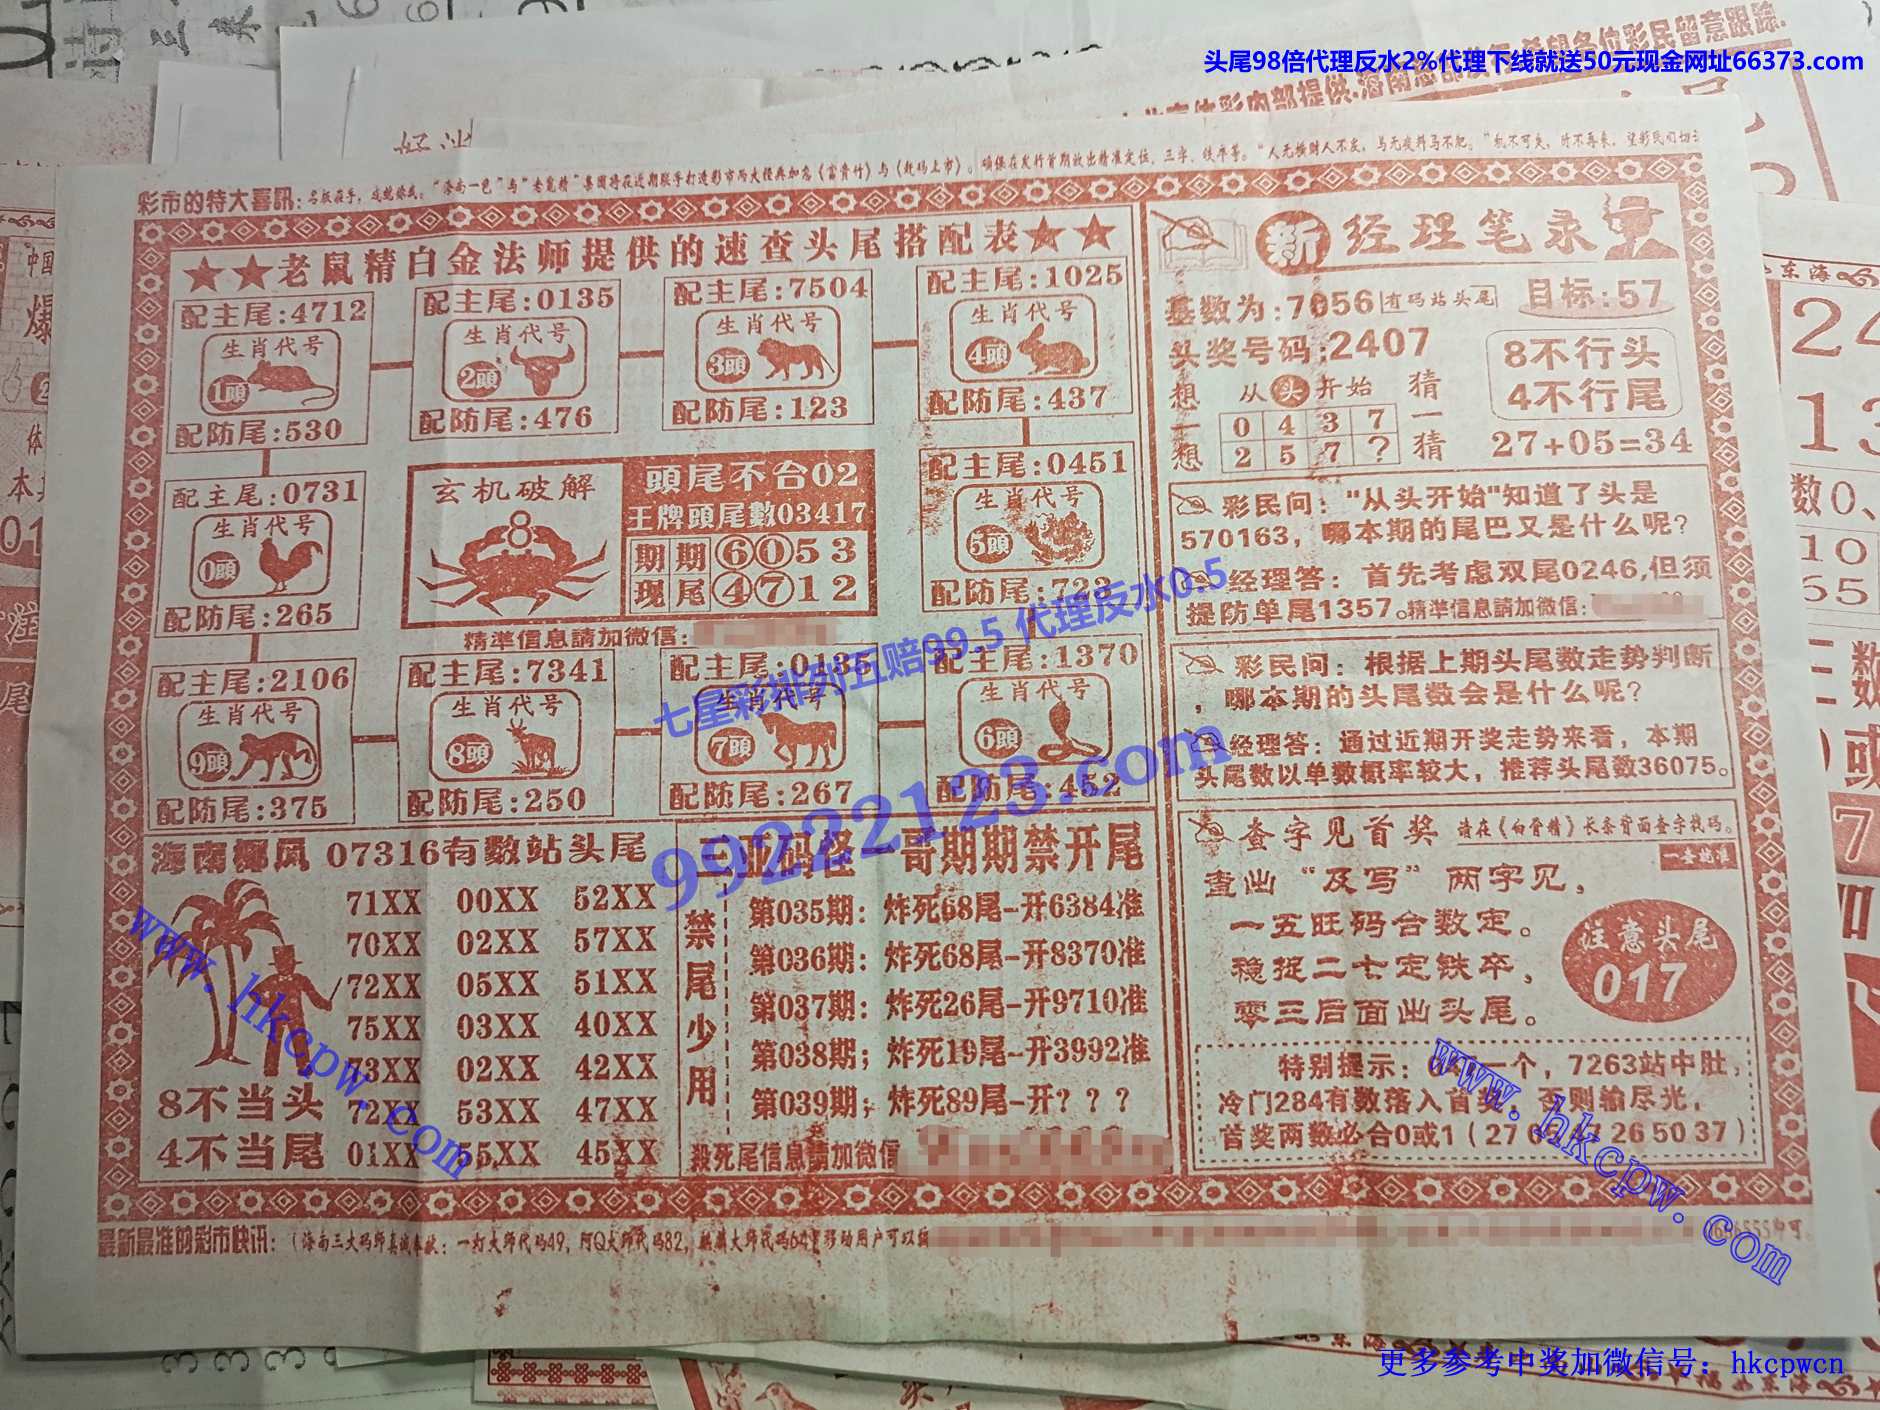 头尾98倍代理反水2%代理下线就送50元现金网址66373.com
彩市的特大喜訊:
★★老鼠精白金法师提供的速查头尾搭配表★★
配主尾:4712
生肖代号
1頭
配防尾:530
配主尾:0135
生肖代号
2頭
配防尾:476
配主尾:7504
生肖代号
3頭
配防尾:123
配主尾:1025
生肖代号
4頭
配防尾:437
配主尾:0731
生肖代号
0頭
配防尾:265
玄机破解
8
頭尾不合02
王牌頭尾數03417
期期⑥⓪53
现尾④⑦12
精準信息請加微信:
配主尾:0451
生肖代号
5頭
配防尾:723
配主尾:2106
生肖代号
9頭
配防尾:375
配主尾:7341
生肖代号
8頭
配防尾:250
配主尾:0135
生肖代号
7頭
配防尾:267
配主尾:1370
生肖代号
6頭
配防尾:452
海南椰风 07316有数站头尾
71XX 00XX 52XX
70XX 02XX 57XX
72XX 05XX 51XX
75XX 03XX 40XX
73XX 02XX 42XX
72XX 53XX 47XX
01XX 55XX 45XX
8不当头
4不当尾
三亚码怪一哥期期禁开尾
禁尾少用
第035期: 炸死68尾-开6384准
第036期: 炸死68尾-开8370准
第037期: 炸死26尾-开9710准
第038期; 炸死19尾-开3992准
第039期; 炸死89尾-开? ? ?
殺死尾信息請加微信
新 经理笔录
基数为:7056 有码站头尾 目标:57
头奖号码:2407
8不行头
4不行尾
想一想
从头开始
0 4 3 7
2 5 7 ?
猜一猜
27+05=34
彩民问: "从头开始"知道了头是
570163, 哪本期的尾巴又是什么呢?
经理答: 首先考虑双尾0246,但须
提防单尾1357。精準信息請加微信:
彩民问: 根据上期头尾数走势判断
, 哪本期的头尾数会是什么呢?
经理答: 通过近期开奖走势来看, 本期
头尾数以单数概率较大, 推荐头尾数36075。
查字见首奖 请在《白骨精》长条背面查字找码。
一查就准
查出 "及写" 两字见,
一五旺码合数定。
稳捉二七定铁卒,
零三后面出头尾。
注意头尾
017
特别提示: 一个, 7263站中肚,
冷门284有数落入首奖, 否则输尽光,
首奖两数必合0或1 ( 27 26 50 37 )
最新最准的彩市快讯:
七星彩排列五赔99.5 代理反水0.5
99222123.com
www.hkcpw.com
www.hkcpw.com
更多参考中奖加微信号: hkcpwcn